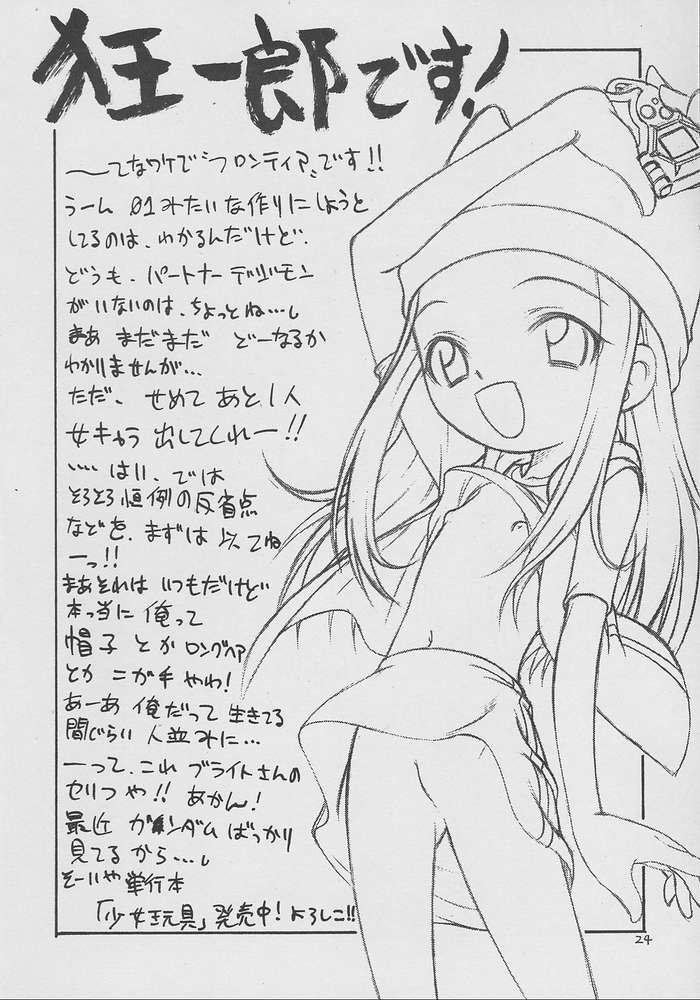 狂一郎です!
〜てなワケで"フロンティア"です!!
うーん 01みたいな作りにしようと
してるのは、わかるんだけど、
どうも、パートナーデジモン
がいないのは、ちょっとね…。
まぁ まだまだ どーなるか
わかりませんが…
ただ、せめてあと1人
女キャラ 出してくれー!!
…… はい、では
そろそろ恒例の反省点
などを、まずは 以てね
ーっ!!
まあそれは いつもだけど
本っ当に 俺って
帽子 とか ロングヘア
とか ニガ手 やわ!
あーあ 俺だって 生きてる
間ぐらい 人並みに…
ーって、これ ブライトさんの
セリフや!! あかん!
最近 ガンダム ばっかり
見てる から…。
そーいや 単行本
「少女玩具」発売中! よろしこ!!
24